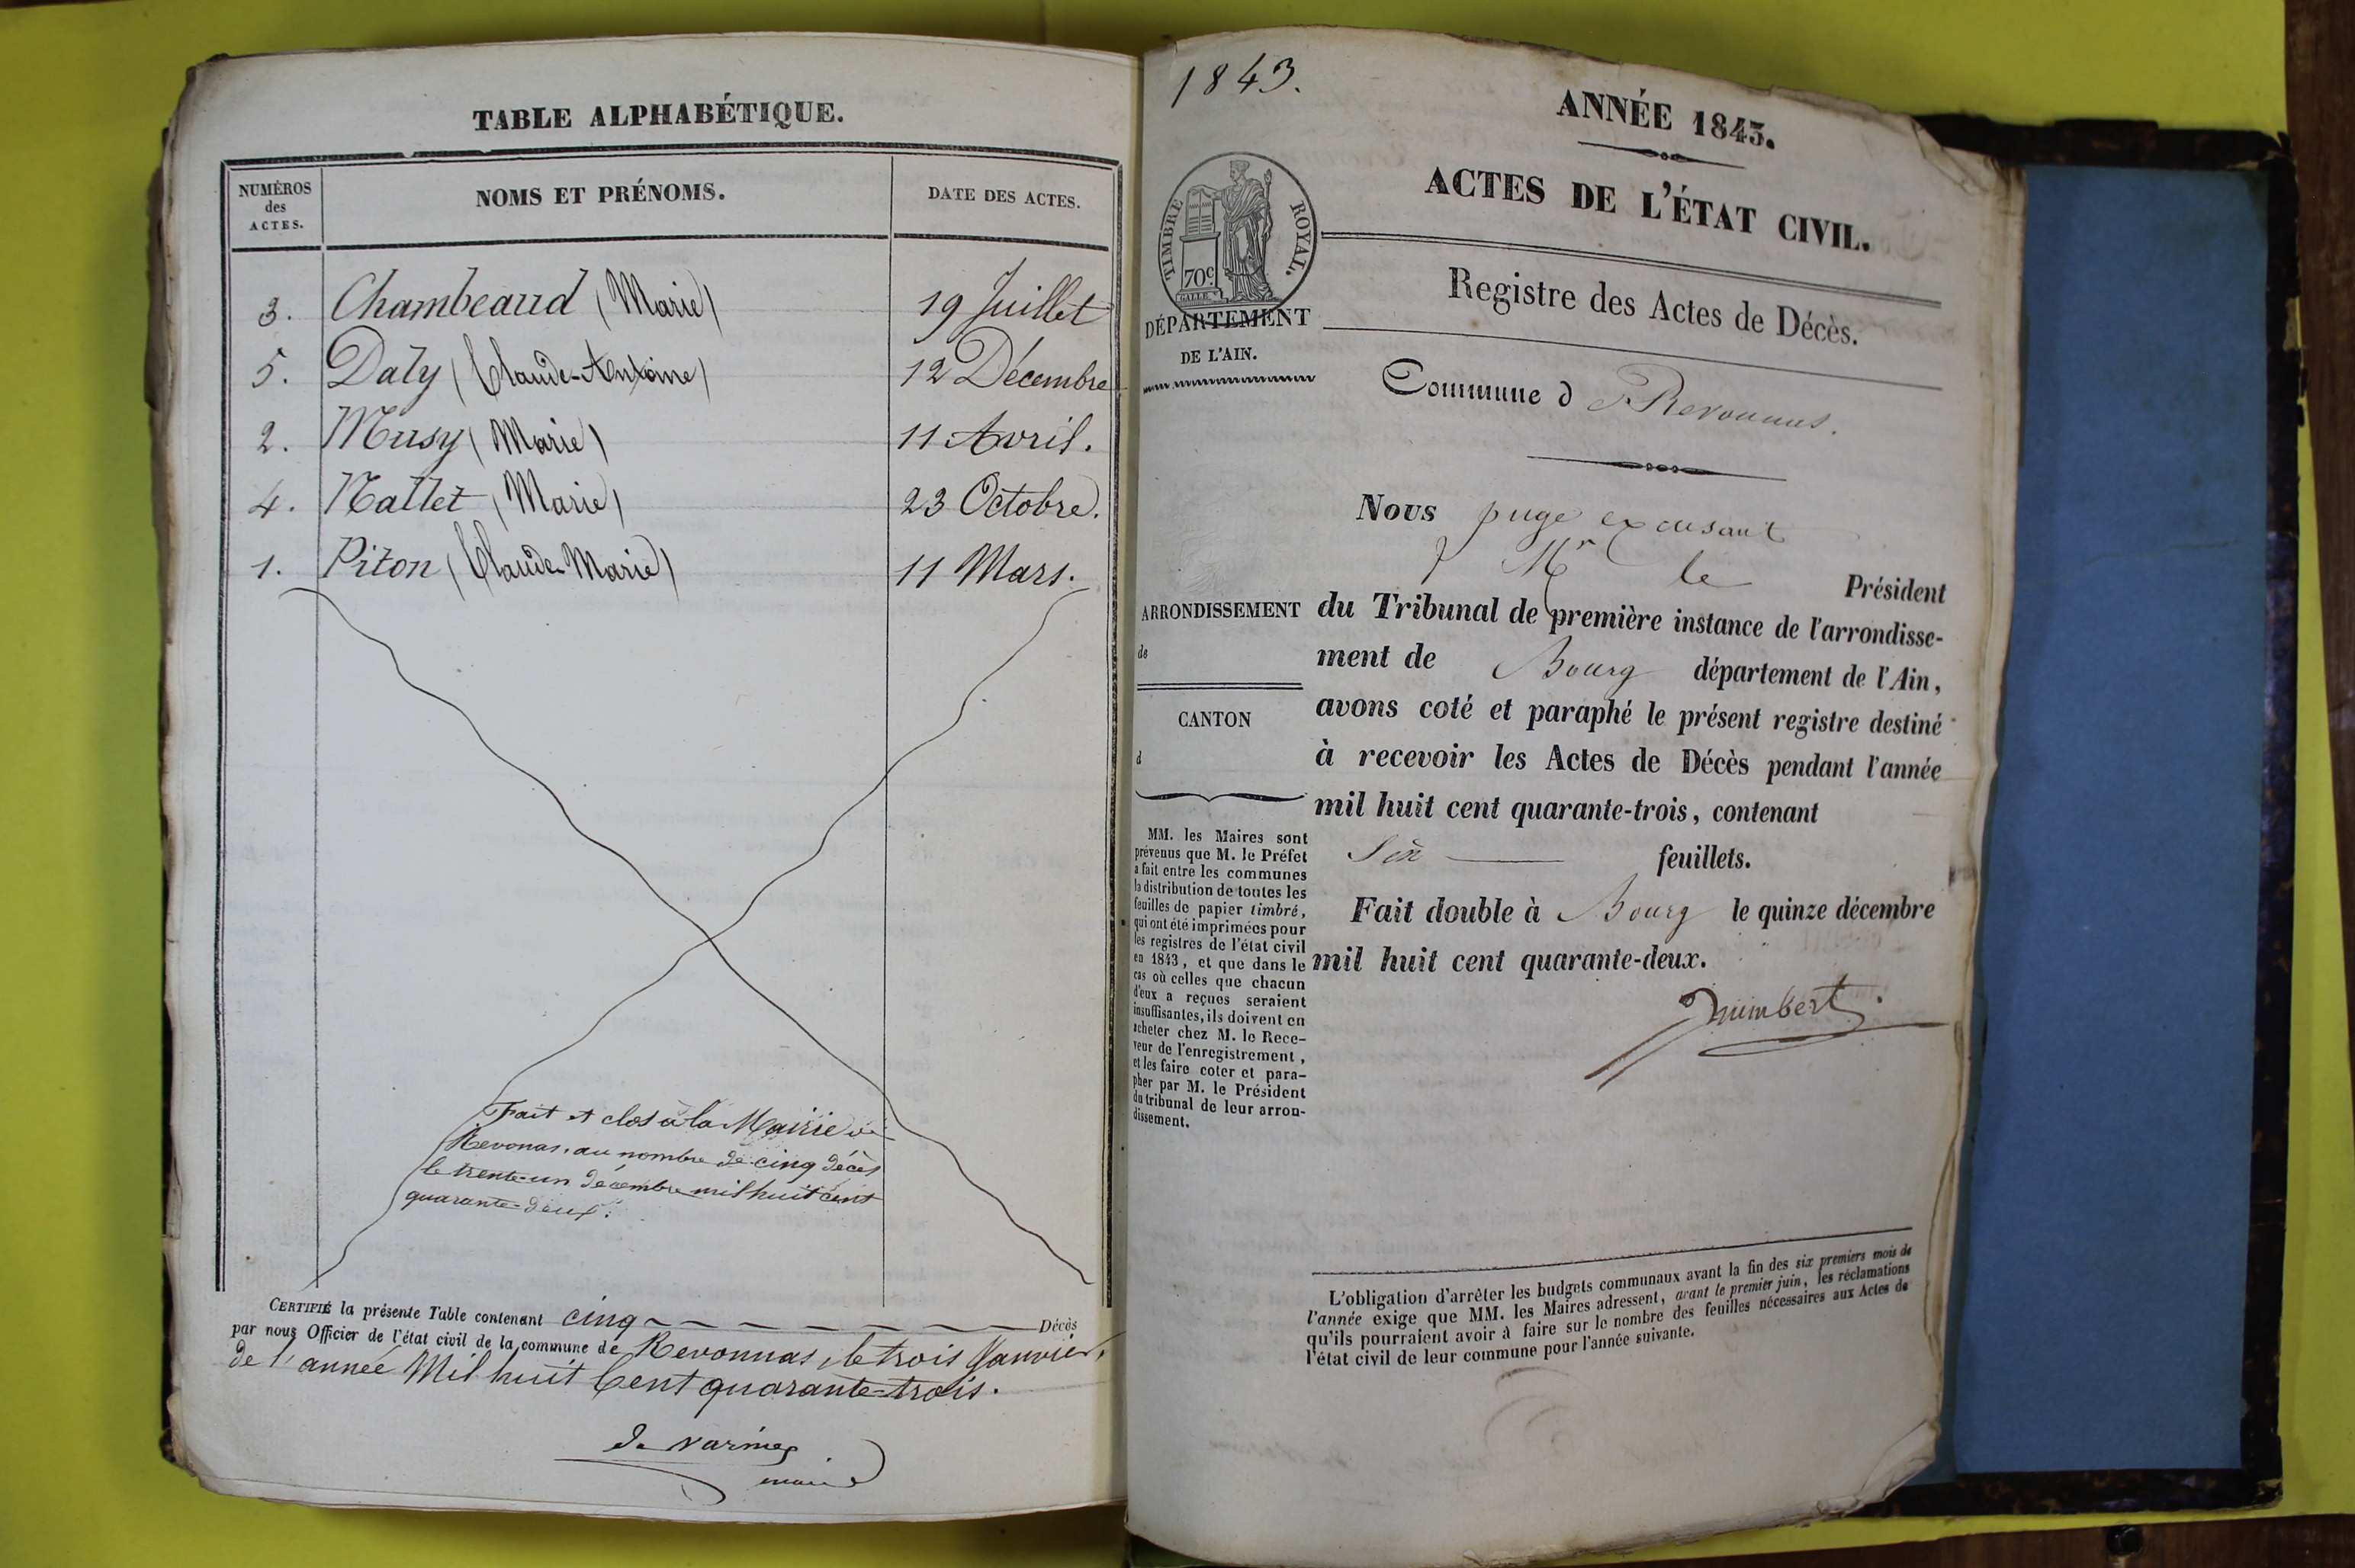 TABLE ALPHABÉTIQUE.
NUMÉROS
des
ACTES.
NOMS ET PRÉNOMS.
DATE DES ACTES.
3. Chambeaud (Marie) 19 Juillet
5. Daly (Claude-Antoine) 12 Décembre
2. Musy (Marie) 11 Avril.
4. Nallet (Marie) 23 Octobre.
1. Piton (Claude-Marie) 11 Mars.
Fait et clos à la Mairie de
Revonas, au nombre de cinq décès
le trente-un décembre mil huit cent
quarante-deux.
CERTIFIÉ la présente Table contenant cinq Décès
par nous Officier de l'état civil de la commune de Revonnas, le trois Janvier,
de l'année Mil huit Cent quarante-trois.
maire
1843.
ANNÉE 1843.
ACTES DE L'ÉTAT CIVIL.
TIMBRE ROYAL.
70c
GALLE
DÉPARTEMENT
DE L'AIN.
Registre des Actes de Décès.
Commune d e Revonnas.
Nous juge excusant
Mr le Président
ARRONDISSEMENT
de
du Tribunal de première instance de l'arrondisse-
ment de Bourg département de l'Ain,
CANTON
d
avons coté et paraphé le présent registre destiné
à recevoir les Actes de Décès pendant l'année
mil huit cent quarante-trois, contenant
Six feuillets.
Fait double à Bourg le quinze décembre
mil huit cent quarante-deux.
MM. les Maires sont
prévenus que M. le Préfet
a fait entre les communes
la distribution de toutes les
feuilles de papier timbré,
qui ont été imprimées pour
les registres de l'état civil
en 1843, et que dans le
cas où celles que chacun
d'eux a reçues seraient
insuffisantes, ils doivent en
acheter chez M. le Rece-
veur de l'enregistrement,
et les faire coter et para-
pher par M. le Président
du tribunal de leur arron-
dissement.
L'obligation d'arrêter les budgets communaux avant la fin des six premiers mois de
l'année exige que MM. les Maires adressent, avant le premier juin, les réclamations
qu'ils pourraient avoir à faire sur le nombre des feuilles nécessaires aux Actes de
l'état civil de leur commune pour l'année suivante.